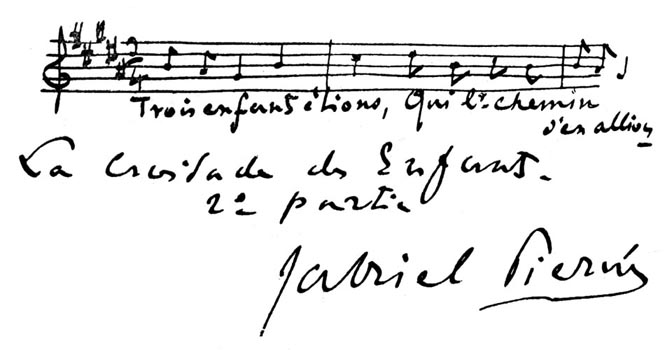 Trois enfants étions, Qui le chemin
s'en allion
La croisade des Enfants.
2e partie
Gabriel Pierné